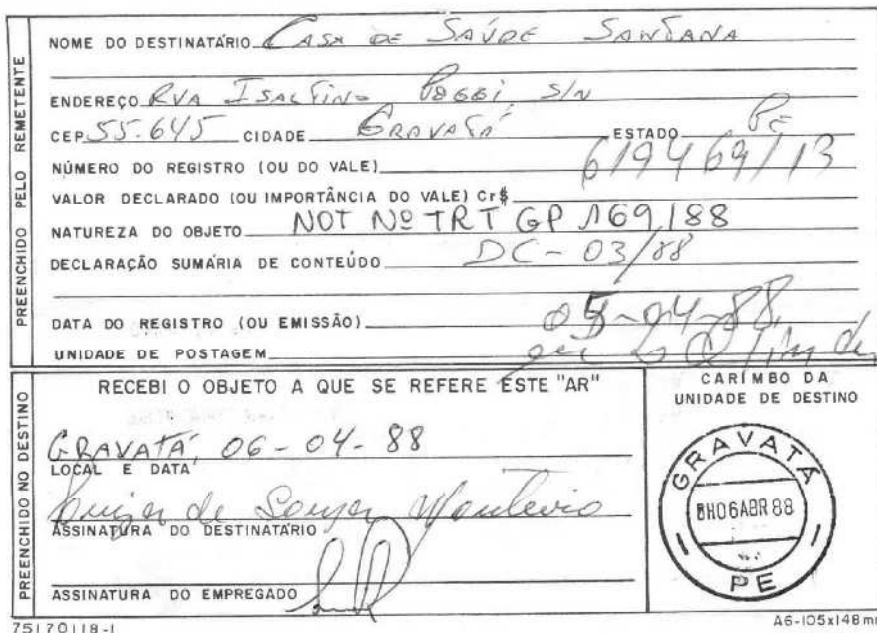 PREENCHIDO PELO REMETENTE
NOME DO DESTINATÁRIO CASA DE SAÚDE SANTANA
ENDEREÇO RUA ISALTINO POGGI, S/N
CEP 55.645 CIDADE GRAVATÁ ESTADO PE
NÚMERO DO REGISTRO (OU DO VALE) 619469/13
VALOR DECLARADO (OU IMPORTÂNCIA DO VALE) Cr$
NATUREZA DO OBJETO NOT Nº TRT GP 169/88
DECLARAÇÃO SUMÁRIA DE CONTEÚDO DC - 03/88
DATA DO REGISTRO (OU EMISSÃO) 05-04-88
UNIDADE DE POSTAGEM
PREENCHIDO NO DESTINO
RECEBI O OBJETO A QUE SE REFERE ESTE "AR"
GRAVATÁ, 06-04-88
LOCAL E DATA
de Souza
ASSINATURA DO DESTINATÁRIO
ASSINATURA DO EMPREGADO
CARIMBO DA
UNIDADE DE DESTINO
GRAVATÁ
06ABR88
PE
75170118-1
A6-105x148mm